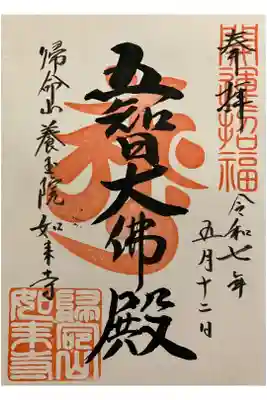 奉拝
開運招福
令和七年
五月十二日
五智大佛殿
帰命山養玉院如来寺
歸命山
如来寺